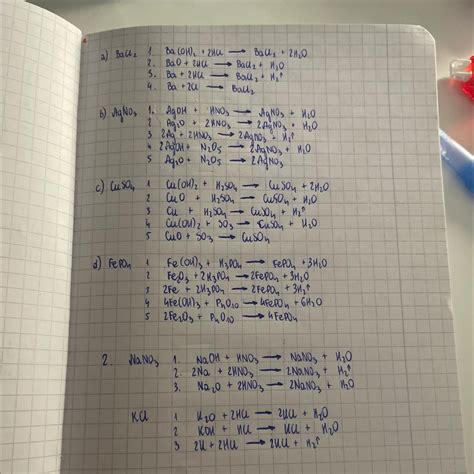 a) BaCl2 1. Ba(OH)2 + 2HCl → BaCl2 + 2H2O
2. BaO + 2HCl → BaCl2 + H2O
3. Ba + 2HCl → BaCl2 + H2↑
4. Ba + Cl2 → BaCl2
b) AgNO3 1. AgOH + HNO3 → AgNO3 + H2O
2 Ag2O + 2HNO3 → 2AgNO3 + H2O
3 2Ag + 2HNO3 → 2AgNO3 + H2↑
4 2AgOH + N2O5 → 2AgNO3 + H2O
5 Ag2O + N2O5 → 2AgNO3
c) CuSO4 1 Cu(OH)2 + H2SO4 → CuSO4 + 2H2O
2 CuO + H2SO4 → CuSO4 + H2O
3 Cu + H2SO4 → CuSO4 + H2↑
4 Cu(OH)2 + SO3 → CuSO4 + H2O
5 CuO + SO3 → CuSO4
d) FePO4 1 Fe(OH)3 + H3PO4 → FePO4 + 3H2O
2 Fe2O3 + 2H3PO4 → 2FePO4 + 3H2O
3 2Fe + 2H3PO4 → 2FePO4 + 3H2↑
4 4Fe(OH)3 + P4O10 → 4FePO4 + 6H2O
5 2Fe2O3 + P4O10 → 4FePO4
2. NaNO3 1. NaOH + HNO3 → NaNO3 + H2O
2. 2Na + 2HNO3 → 2NaNO3 + H2↑
3. Na2O + 2HNO3 → 2NaNO3 + H2O
KCl 1 K2O + 2HCl → 2KCl + H2O
2 KOH + HCl → KCl + H2O
3 2K + 2HCl → 2KCl + H2↑